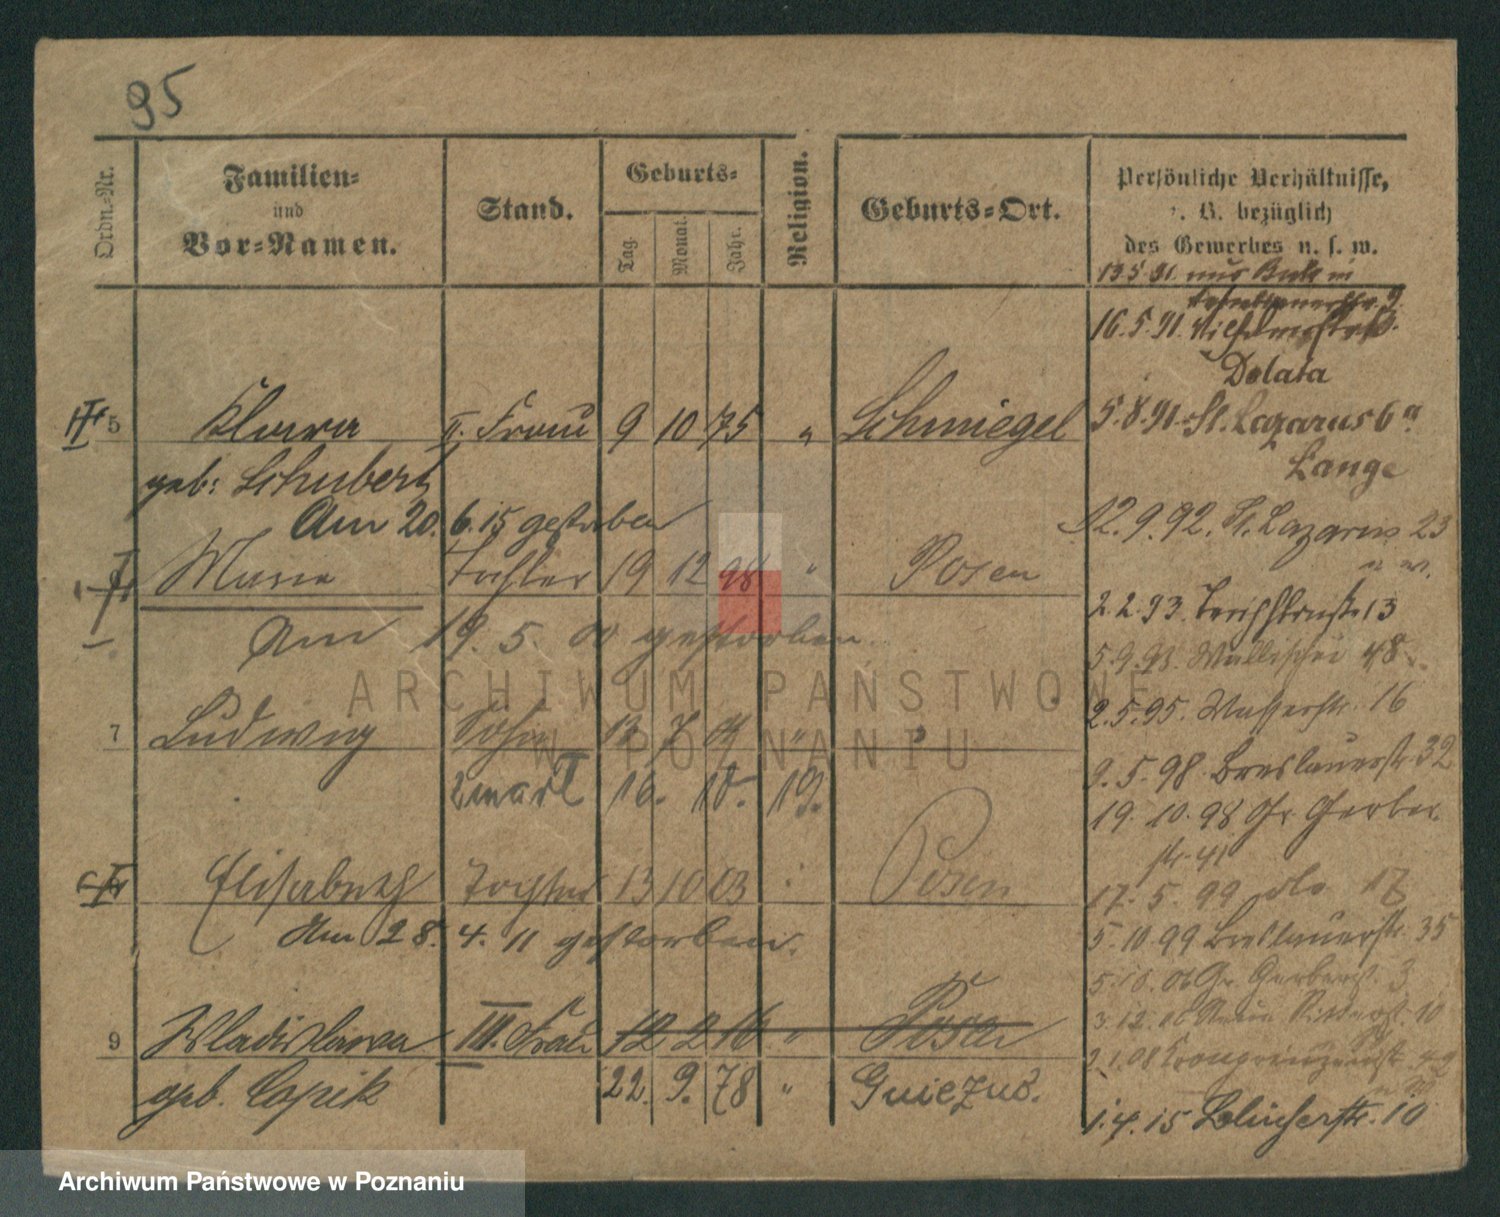 95
Ordn.-Nr.
Familien-
und
Vor-Namen.
Stand.
Geburts-
Tag.
Monat.
Jahr.
Religion.
Geburts-Ort.
Persönliche Verhältnisse,
z. B. bezüglich
des Gewerbes u. s. w.
13.5.91. aus
9.
16.5.91.
Dolata
5 Klara II. Frau 9 10 75 " Schmiegel
5.8.91. St. Lazarus 6a
geb: Schubert
Lange
Am 20. 6. 15 gestorben
12.9.92. St. Lazarus 23
Marie Tochter 19 12 98 " Posen
2.2.93. 13
Am 19. 5. 00 gestorben.
5.9.93. Wallischei 48
2.5.95. Wasserstr. 16
7 Ludwig Sohn 13 7 01 " "
9. 5. 98 Breslauerstr. 32
zmarł 16. 10. 19.
19. 10. 98 Gr. Gerber
str. 41
Elisabeth Tochter 13 10 03 Posen
17. 5. 99 do 17
Am 28. 4. 11 gestorben.
5. 10. 99 Breslauerstr. 35
5. 10. 06 Gr. Gerberst. 3
3. 12. 06 Ritterst. 10
9 Wladislawa III. Frau 12 2 16 " Posen
2.1.08 Kronprinzenst.
geb. Capik 22. 9. 78 " Gniezno.
1. 4. 15 Blücherstr. 10
ARCHIWUM PAŃSTWOWE
W POZNANIU
Archiwum Państwowe w Poznaniu